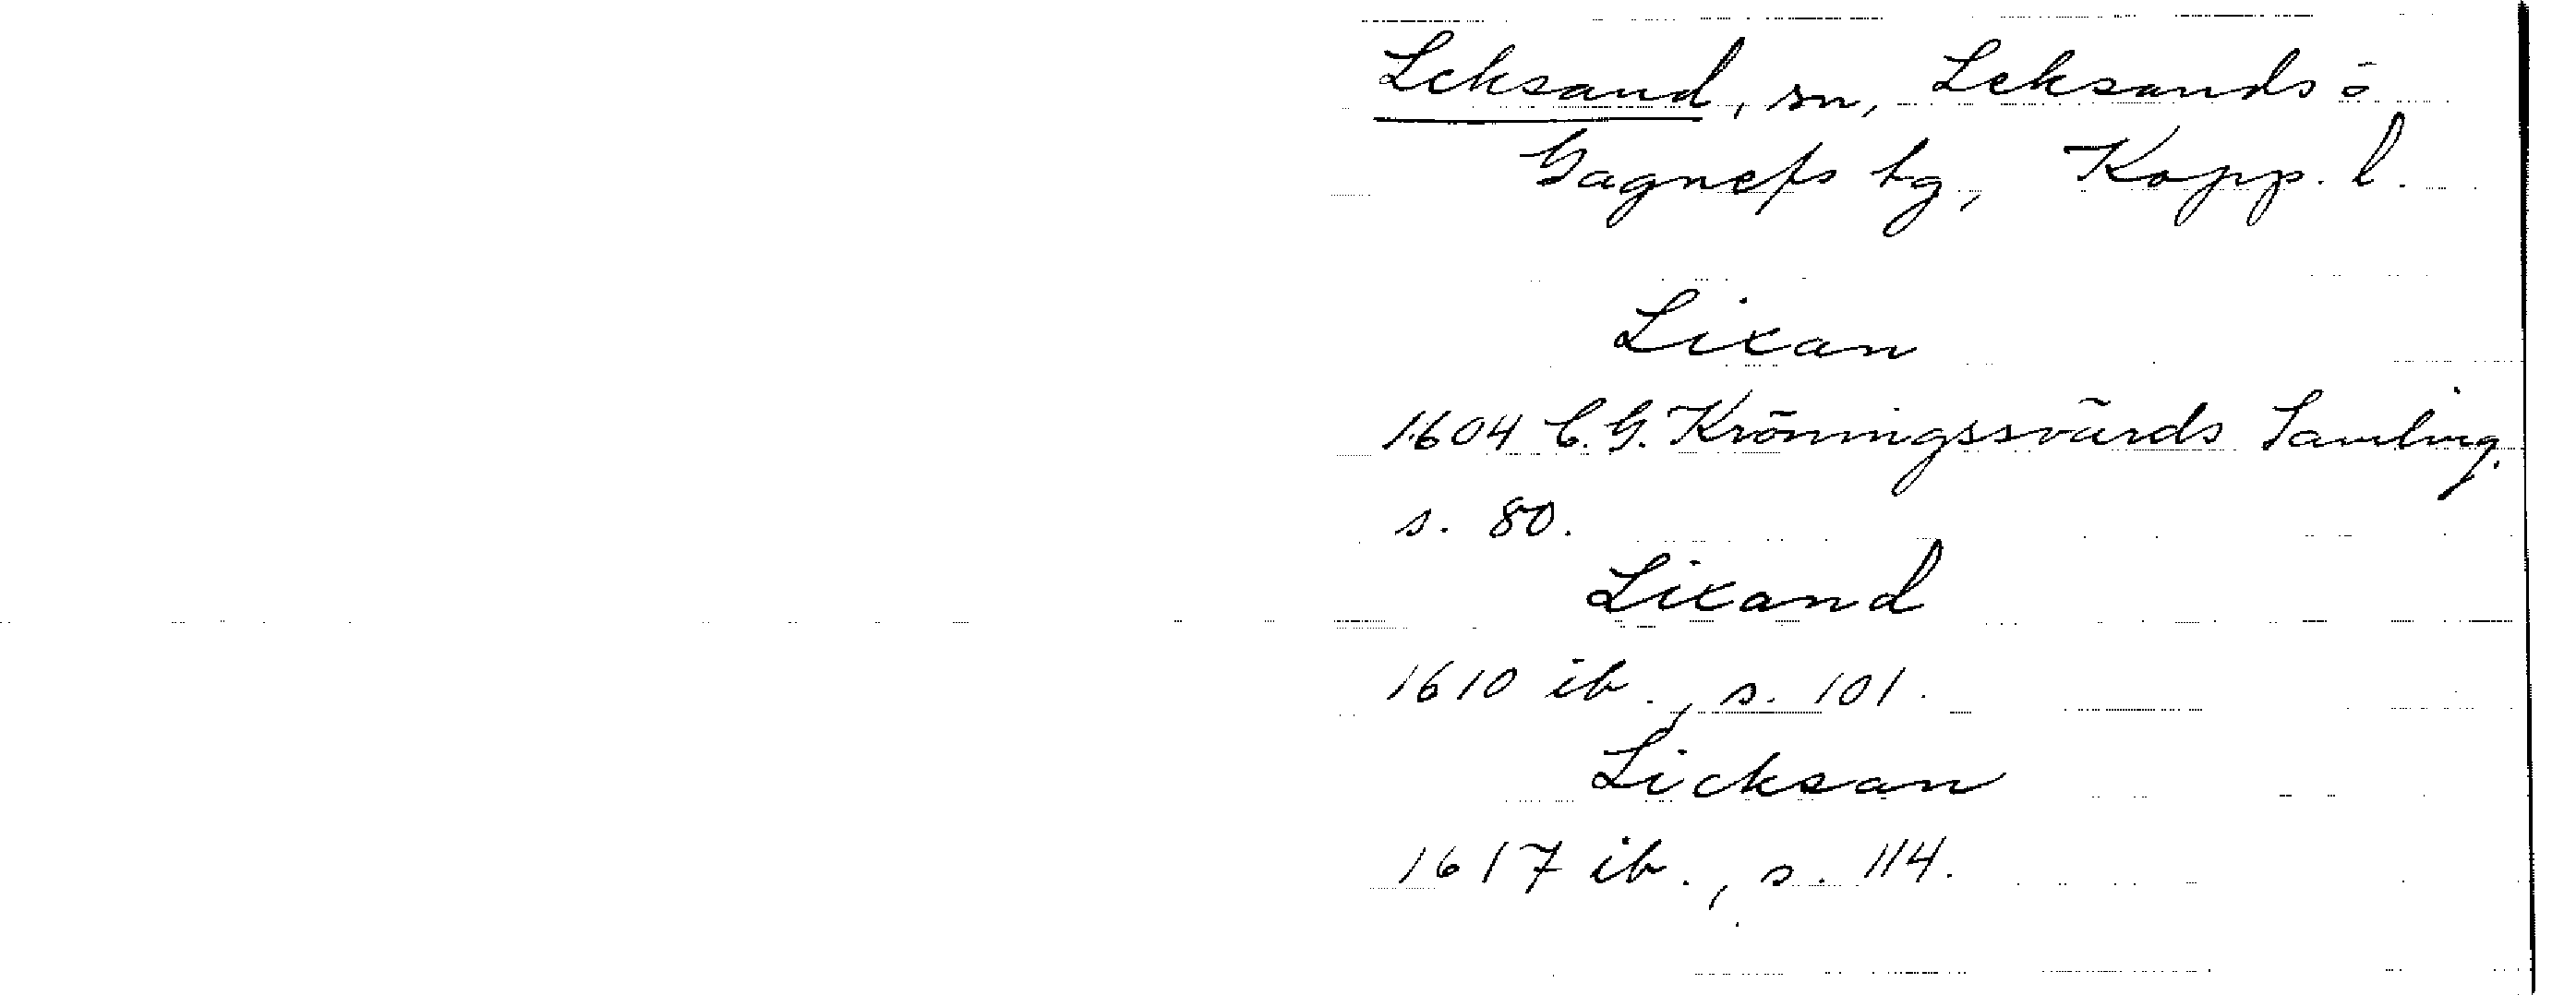 Leksand, sn, Leksands o
Gagnefs tg, Kopp. l.
Lixan
1604 C. G. Kröningssvärds Samling.
s. 80.
Lixand
1610 ib., s. 101.
Licksan
1617 ib., s. 114.